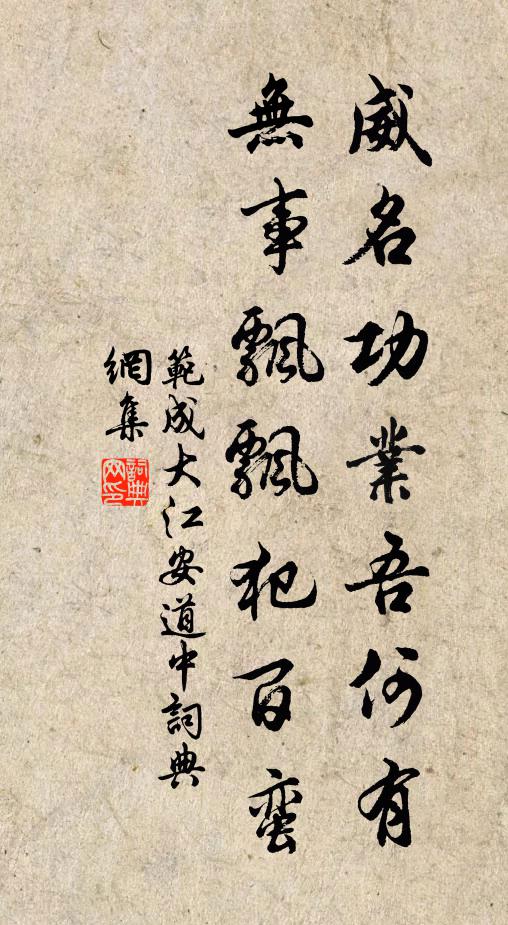 威名功業吾何有
無事飄飄犯百蠻
範成大江安道中詞典
網集
詞典
网印